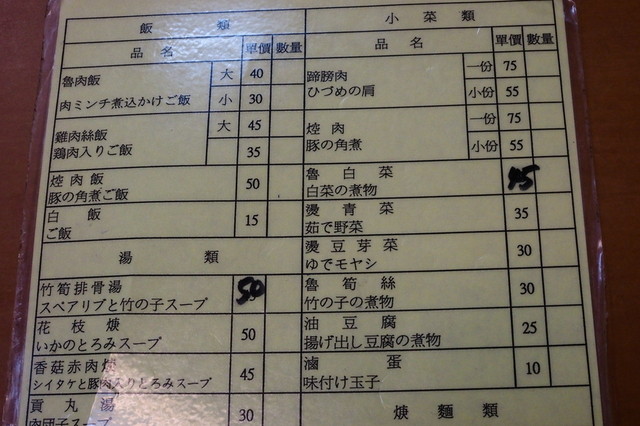 飯類
品名 單價 數量
魯肉飯 大 40
肉ミンチ煮込かけご飯 小 30
雞肉絲飯 大 45
鶏肉入りご飯 35
焢肉飯 50
豚の角煮ご飯
白飯 15
ご飯
湯類
竹筍排骨湯 50
スペアリブと竹の子スープ
花枝焿 50
いかのとろみスープ
香菇赤肉焿 45
シイタケと豚肉入りとろみスープ
貢丸湯 30
肉団子スープ
小菜類
品名 單價 數量
蹄膀肉 一份 75
ひづめの肩 小份 55
焢肉 一份 75
豚の角煮 小份 55
魯白菜
白菜の煮物
燙青菜 35
茹で野菜
燙豆芽菜 30
ゆでモヤシ
魯筍絲 30
竹の子の煮物
油豆腐 25
揚げ出し豆腐の煮物
滷蛋 10
味付け玉子
焿麵類